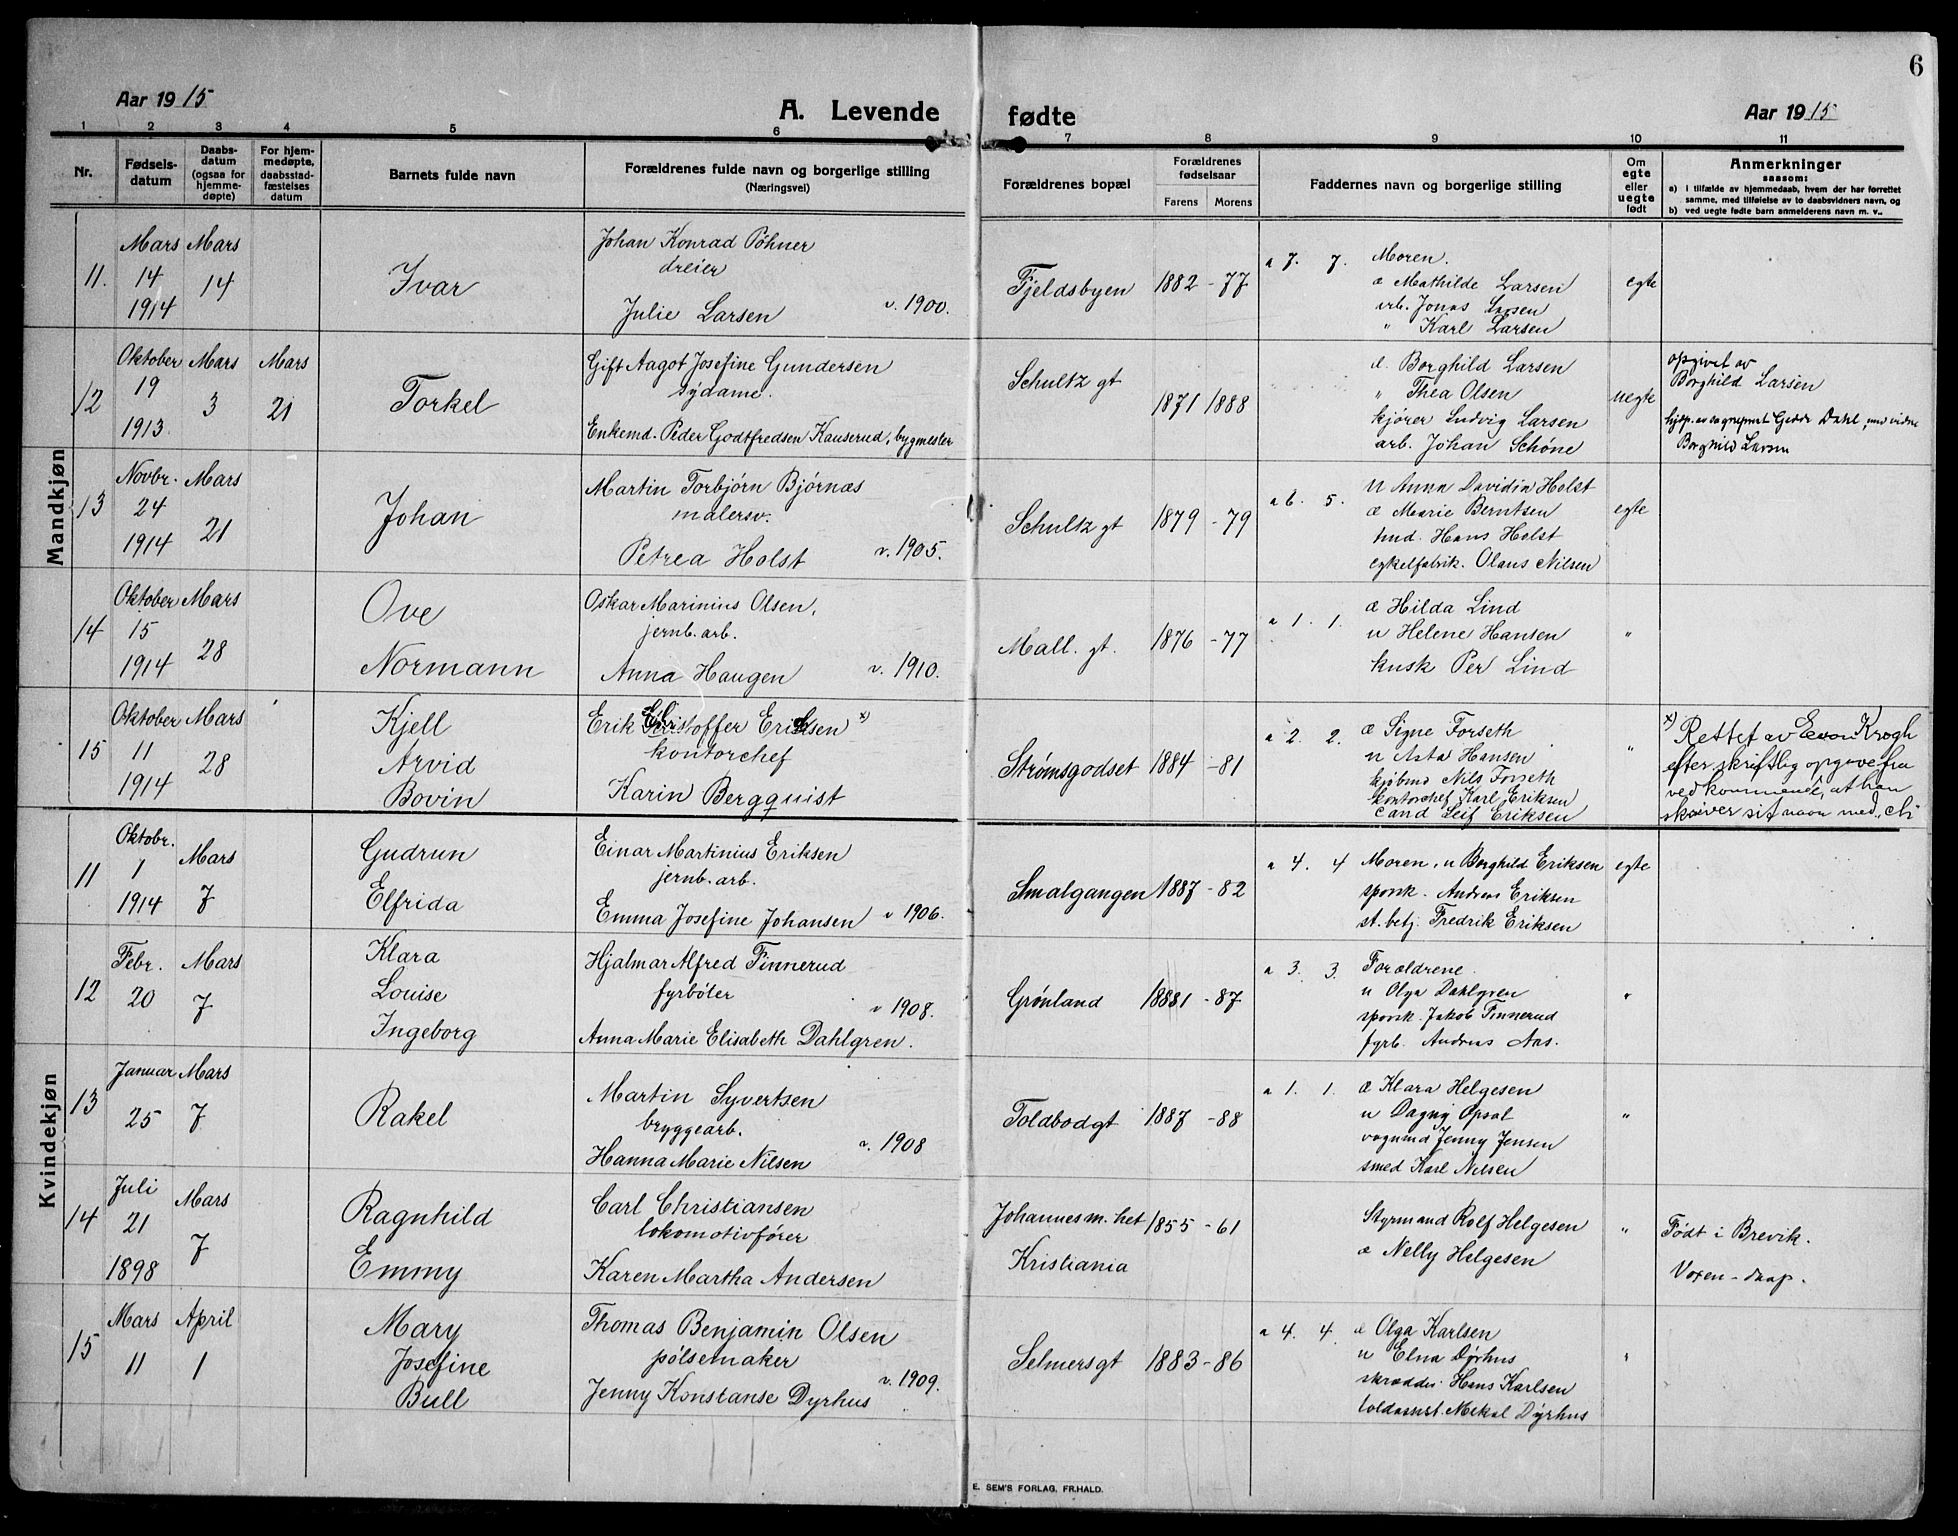 6
Aar 1915
A. Levende fødte
Aar 1915
1 2 3 4 5 6 7 8 9 10 11
Nr.
Fødsels-
datum
Daabs-
datum
(ogsaa for
hjemme-
døpte)
For hjem-
medøpte,
daabsstad-
fæstelses
datum
Barnets fulde navn
Forældrenes fulde navn og borgerlige stilling
(Næringsvei)
Forældrenes bopæl
Forældrenes
fødselsaar
Farens Morens
Faddernes navn og borgerlige stilling
Om
egte
eller
uegte
født
Anmerkninger
saasom:
a) i tilfælde av hjemmedaab, hvem der har forrettet
samme, med tilføielse av to daabsvidners navn, og
b) ved uegte fødte barn anmelderens navn m. v..
Mandkjøn
11.
Mars
14
1914
Mars
14
Ivar
Johan Konrad Pöhner
dreier
Julie Larsen v. 1900.
Fjeldsbyen 1882 - 77
a 7. 7.
Moren.
æ Mathilde Larsen
arb. Jonas Larsen
" Karl Larsen
egte
12
Oktober
19
1913.
Mars
3
Mars
21
Torkel
Gift Aagot Josefine Gundersen
sydame.
Enkemd. Peder Godtfredsen Kauserud, bygmester
Schultz gt
1871 1888
æ. Borghild Larsen
" Thea Olsen
kjører Ludvig Larsen
arb. Johan Schöne
uegte
opgivet av
Borghild Larsen
Dahl, med vidne
Borghild Larsen
13
Novbr.
24
1914
Mars
21
Johan
Martin Torbjörn Björnæs
malersv.
Petrea Holst v. 1905.
Schultz gt 1879 - 79
a 6. 5.
u Anna Davidia Holst
æ Marie Berntsen
hmd. Hans Holst
cykelfabrik. Olaus Nilsen
egte
14
Oktober
15
1914
Mars
28
Ove
Normann
Oskar Marinius Olsen,
jernb. arb.
Anna Haugen v. 1910.
Mall. gt. 1876 - 77
a 1. 1.
æ Hilda Lind
u Helene Hansen
kusk Per Lind
"
15
Oktober
11
1914
Mars
28
Kjell
Arvid
Bovin
Erik Christoffer Eriksen x)
kontorchef
Karin Bergquist
Strømsgodset 1884 - 81
a 2. 2.
æ Signe Forseth
u Asta Hansen
kjøbmd Nils Forseth
kontorchef Karl Eriksen
cand Leif Eriksen
"
x) Rettet av Krogh
efter skriftlig opgave fra
vedkommende, at han
skriver sit navn med „ch
Kvindekjøn
11
Oktobr.
1
1914
Mars
7
Gudrun
Elfrida
Einar Martinius Eriksen
jernb. arb.
Emma Josefine Johansen v 1906.
Smalgangen 1887 - 82
a 4. 4
Moren, u Borghild Eriksen
sporsk. Andreas Eriksen
st. betj. Fredrik Eriksen
egte
12
Febr.
20
Mars
7
Klara
Louise
Ingeborg
Hjalmar Alfred Finnerud
fyrböter
v 1908.
Anna Marie Elisabeth Dahlgren.
Grönland 1881 - 87
a 3. 3.
Forældrene.
u Olga Dahlgren
sporsk. Jakob Finnerud
fyrb. Andreas Aas.
"
13
Januar
25
Mars
7
Rakel
Martin Syvertsen
bryggearb.
v. 1908
Hanna Marie Nilsen
Toldbodgt 1887 - 88
a 1. 1.
æ Klara Helgesen
u Dagny Opsal
vognmd Jenny Jensen
smed Karl Nilsen
"
14
Juli
21
1898
Mars
7
Ragnhild
Emmy
Carl Christiansen
lokomotivfører
Karen Martha Andersen
Johannes m. het
Kristiania
1855 - 61
Styrmand Rolf Helgesen
æ Nelly Helgesen
"
Født i Brevik.
Voxen-daap.
15
Mars
11
April
1
Mary
Josefine
Bull
Thomas Benjamin Olsen
pölsemaker
v. 1909.
Jenny Konstanse Dyrhus
Selmersgt 1883 - 86
a 4. 4
æ Olga Karlsen
u Elna Dyrhus
skrædder Hans Karlsen
toldassist. Mekal Dyrhus
"
E. SEM'S FORLAG, FR.HALD.